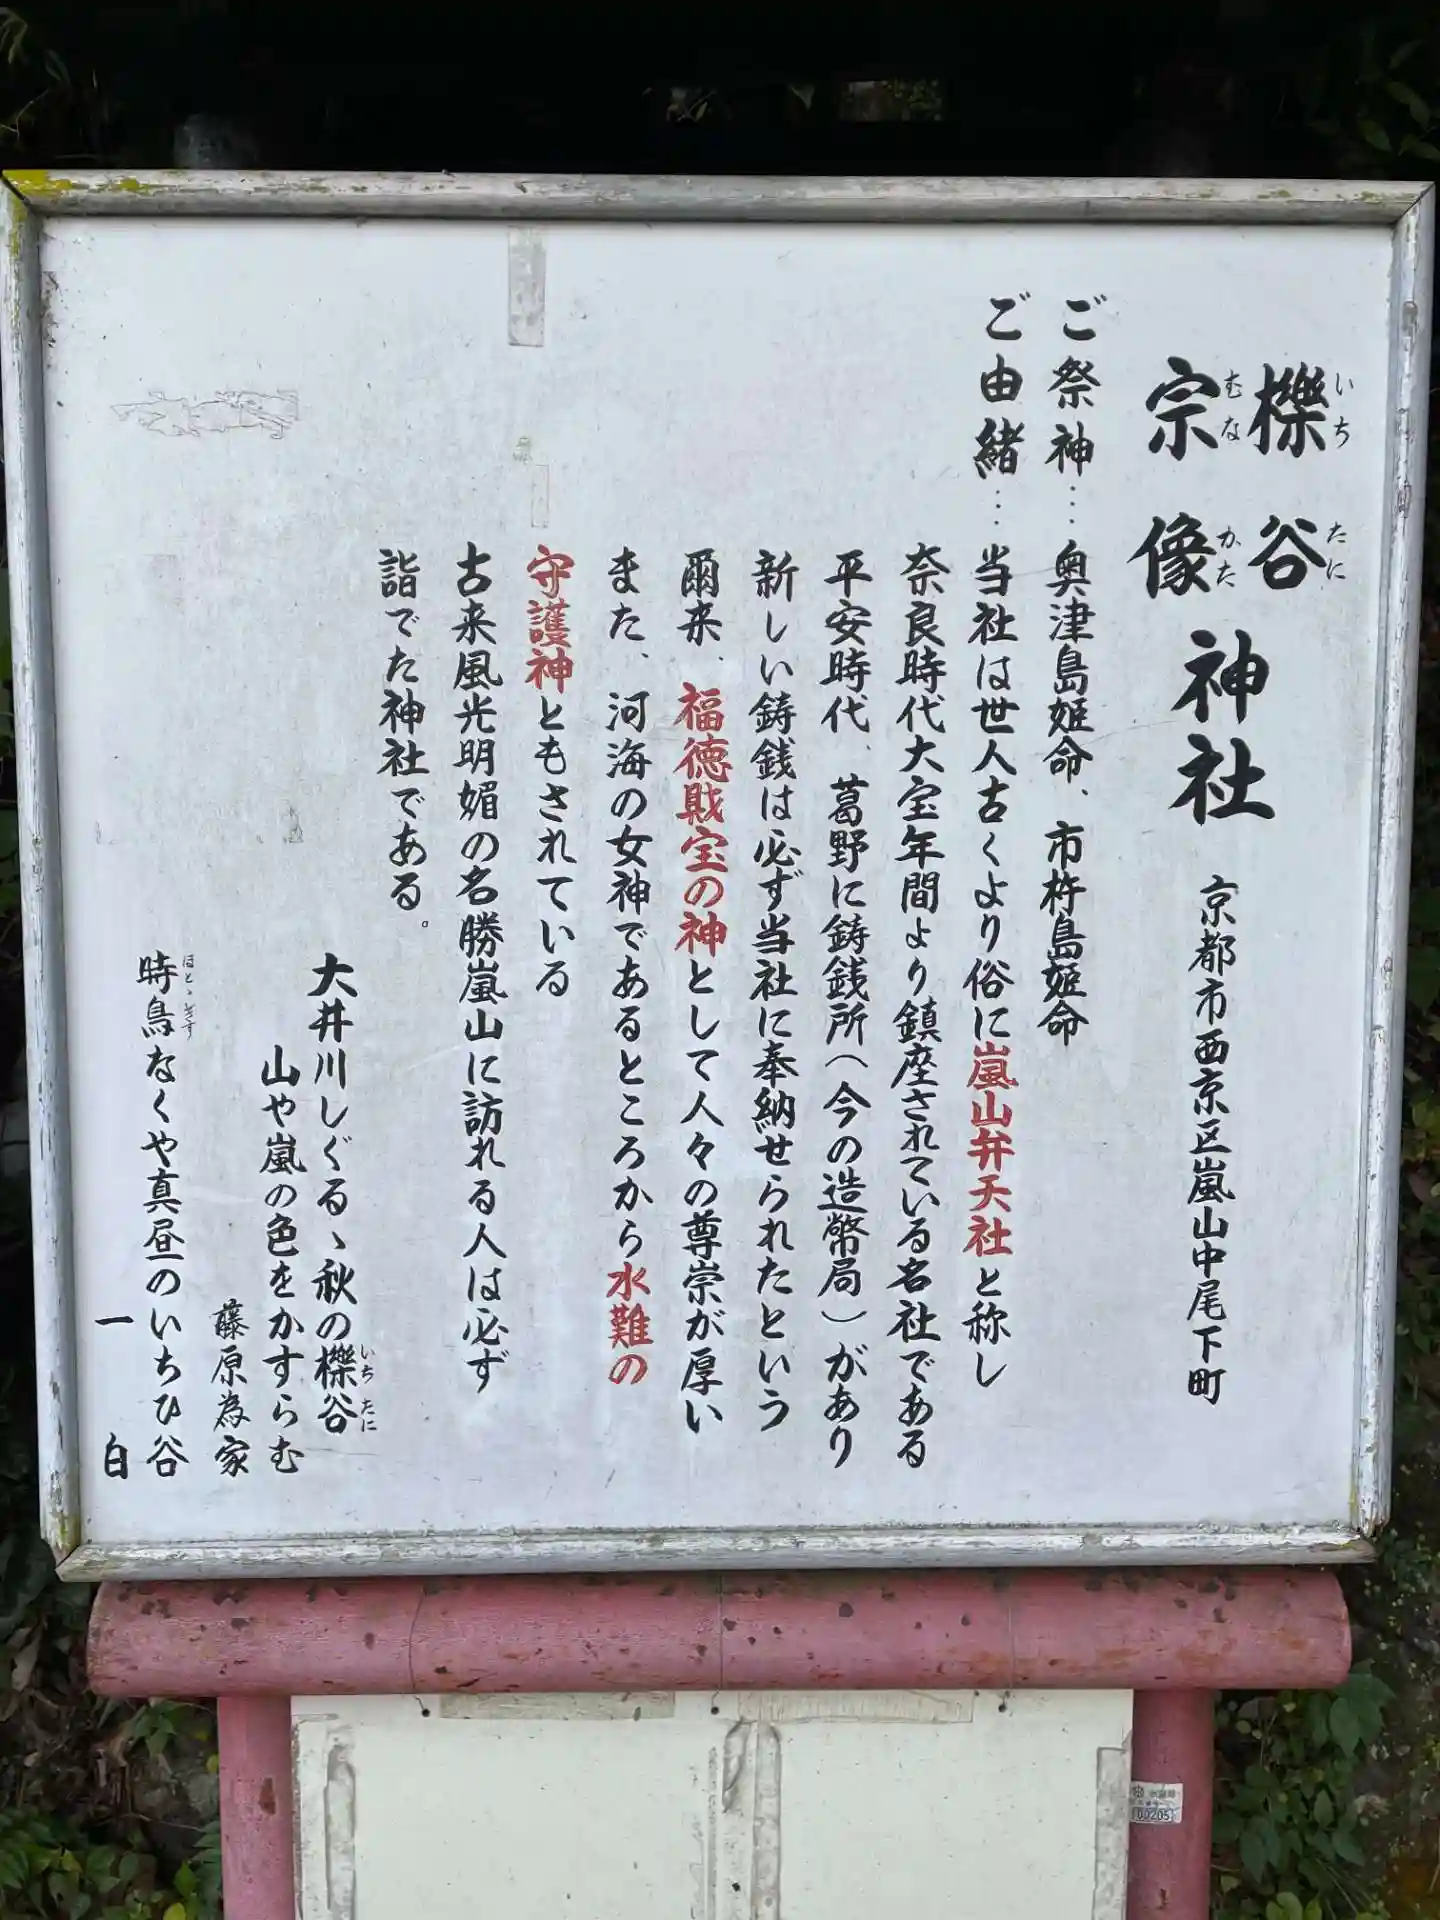 櫟谷
いちたに
宗像
むなかた
神社
京都市西京区嵐山中尾下町
ご祭神…奥津島姫命、市杵島姫命
ご由緒…当社は世人古くより俗に嵐山弁天社と称し
奈良時代大宝年間より鎮座されている名社である
平安時代、葛野に鋳銭所(今の造幣局)があり
新しい鋳銭は必ず当社に奉納せられたという
爾来、福徳財宝の神として人々の尊崇が厚い
また、河海の女神であるところから水難の
守護神ともされている
古来風光明媚の名勝嵐山に訪れる人は必ず
詣でた神社である。
大井川しぐるゝ秋の櫟谷
いちたに
山や嵐の色をかすらむ
藤原為家
時鳥なくや真昼のいちひ谷
ほとゝぎす
一白
00205